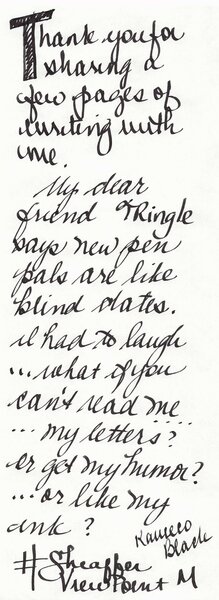 Thank you for
sharing a
few pages of
writing with
me.
My dear
friend TKingle
says new pen
pals are like
blind dates.
I had to laugh
...what if you
can't read me
....
... my letters?
or get my humor?
...or like my
ink?
Kaweco
Black
#Sheaffer
ViewPoint M